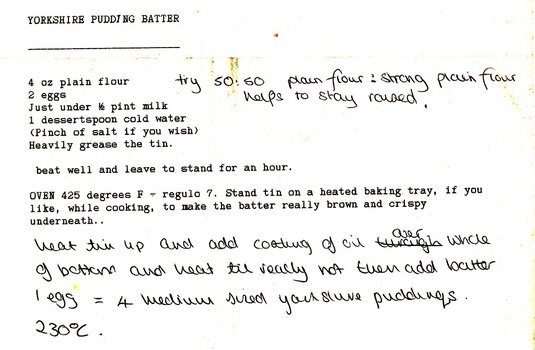 YORKSHIRE PUDDING BATTER
4 oz plain flour
try 50:50 plain flour : strong plain flour
2 eggs
helps to stay raised.
Just under ½ pint milk
1 dessertspoon cold water
(Pinch of salt if you wish)
Heavily grease the tin.
beat well and leave to stand for an hour.
OVEN 425 degrees F - regulo 7. Stand tin on a heated baking tray, if you
like, while cooking, to make the batter really brown and crispy
underneath..
heat tin up and add coating of oil through over whole
of bottom and heat til really hot then add batter
1 egg = 4 medium sized yorkshire puddings.
230°C.